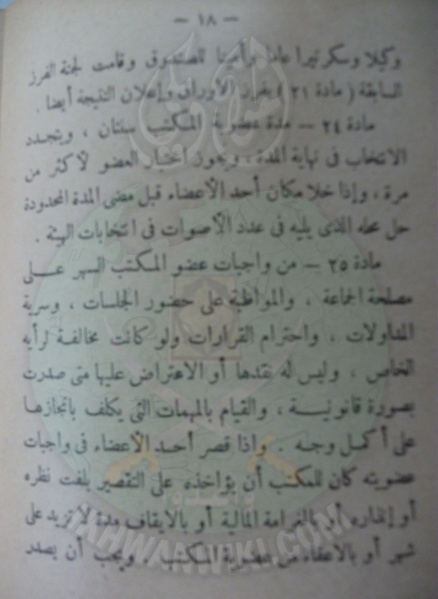 — ١٨ —
وكيلا وسكرتيرا عاما وأمينا للصندوق وقامت لجنة الفرز
السابقة ( مادة ٢١ ) بفرز الأوراق وإعلان النتيجة أيضا .
مادة ٢٤ — مدة عضوية المكتب سنتان ، ويتجدد
الانتخاب فى نهاية المدة ، ويجوز اختيار العضو لأكثر من
مرة ، وإذا خلا مكان أحد الأعضاء قبل مضى المدة المحدودة
حل محله الذى يليه فى عدد الأصوات فى انتخابات الهيئة .
مادة ٢٥ — من واجبات عضو المكتب السهر على
مصلحة الجماعة ، والمواظبة على حضور الجلسات ، وسرية
المداولات ، واحترام القرارات ولو كانت مخالفة لرأيه
الخاص ، وليس له نقدها أو الاعتراض عليها متى صدرت
بصورة قانونية ، والقيام بالمهمات التى يكلف بانجازها
على أكمل وجه . واذا قصر أحد الأعضاء فى واجبات
عضويته كان للمكتب أن يؤاخذه على التقصير بلفت نظره
أو إنذاره أو بالغرامة المالية أو بالايقاف مدة لا تزيد على
شهر أو بالاعفاء من عضوية المكتب . ويجب أن يصدر
IKHWANWIKI.COM